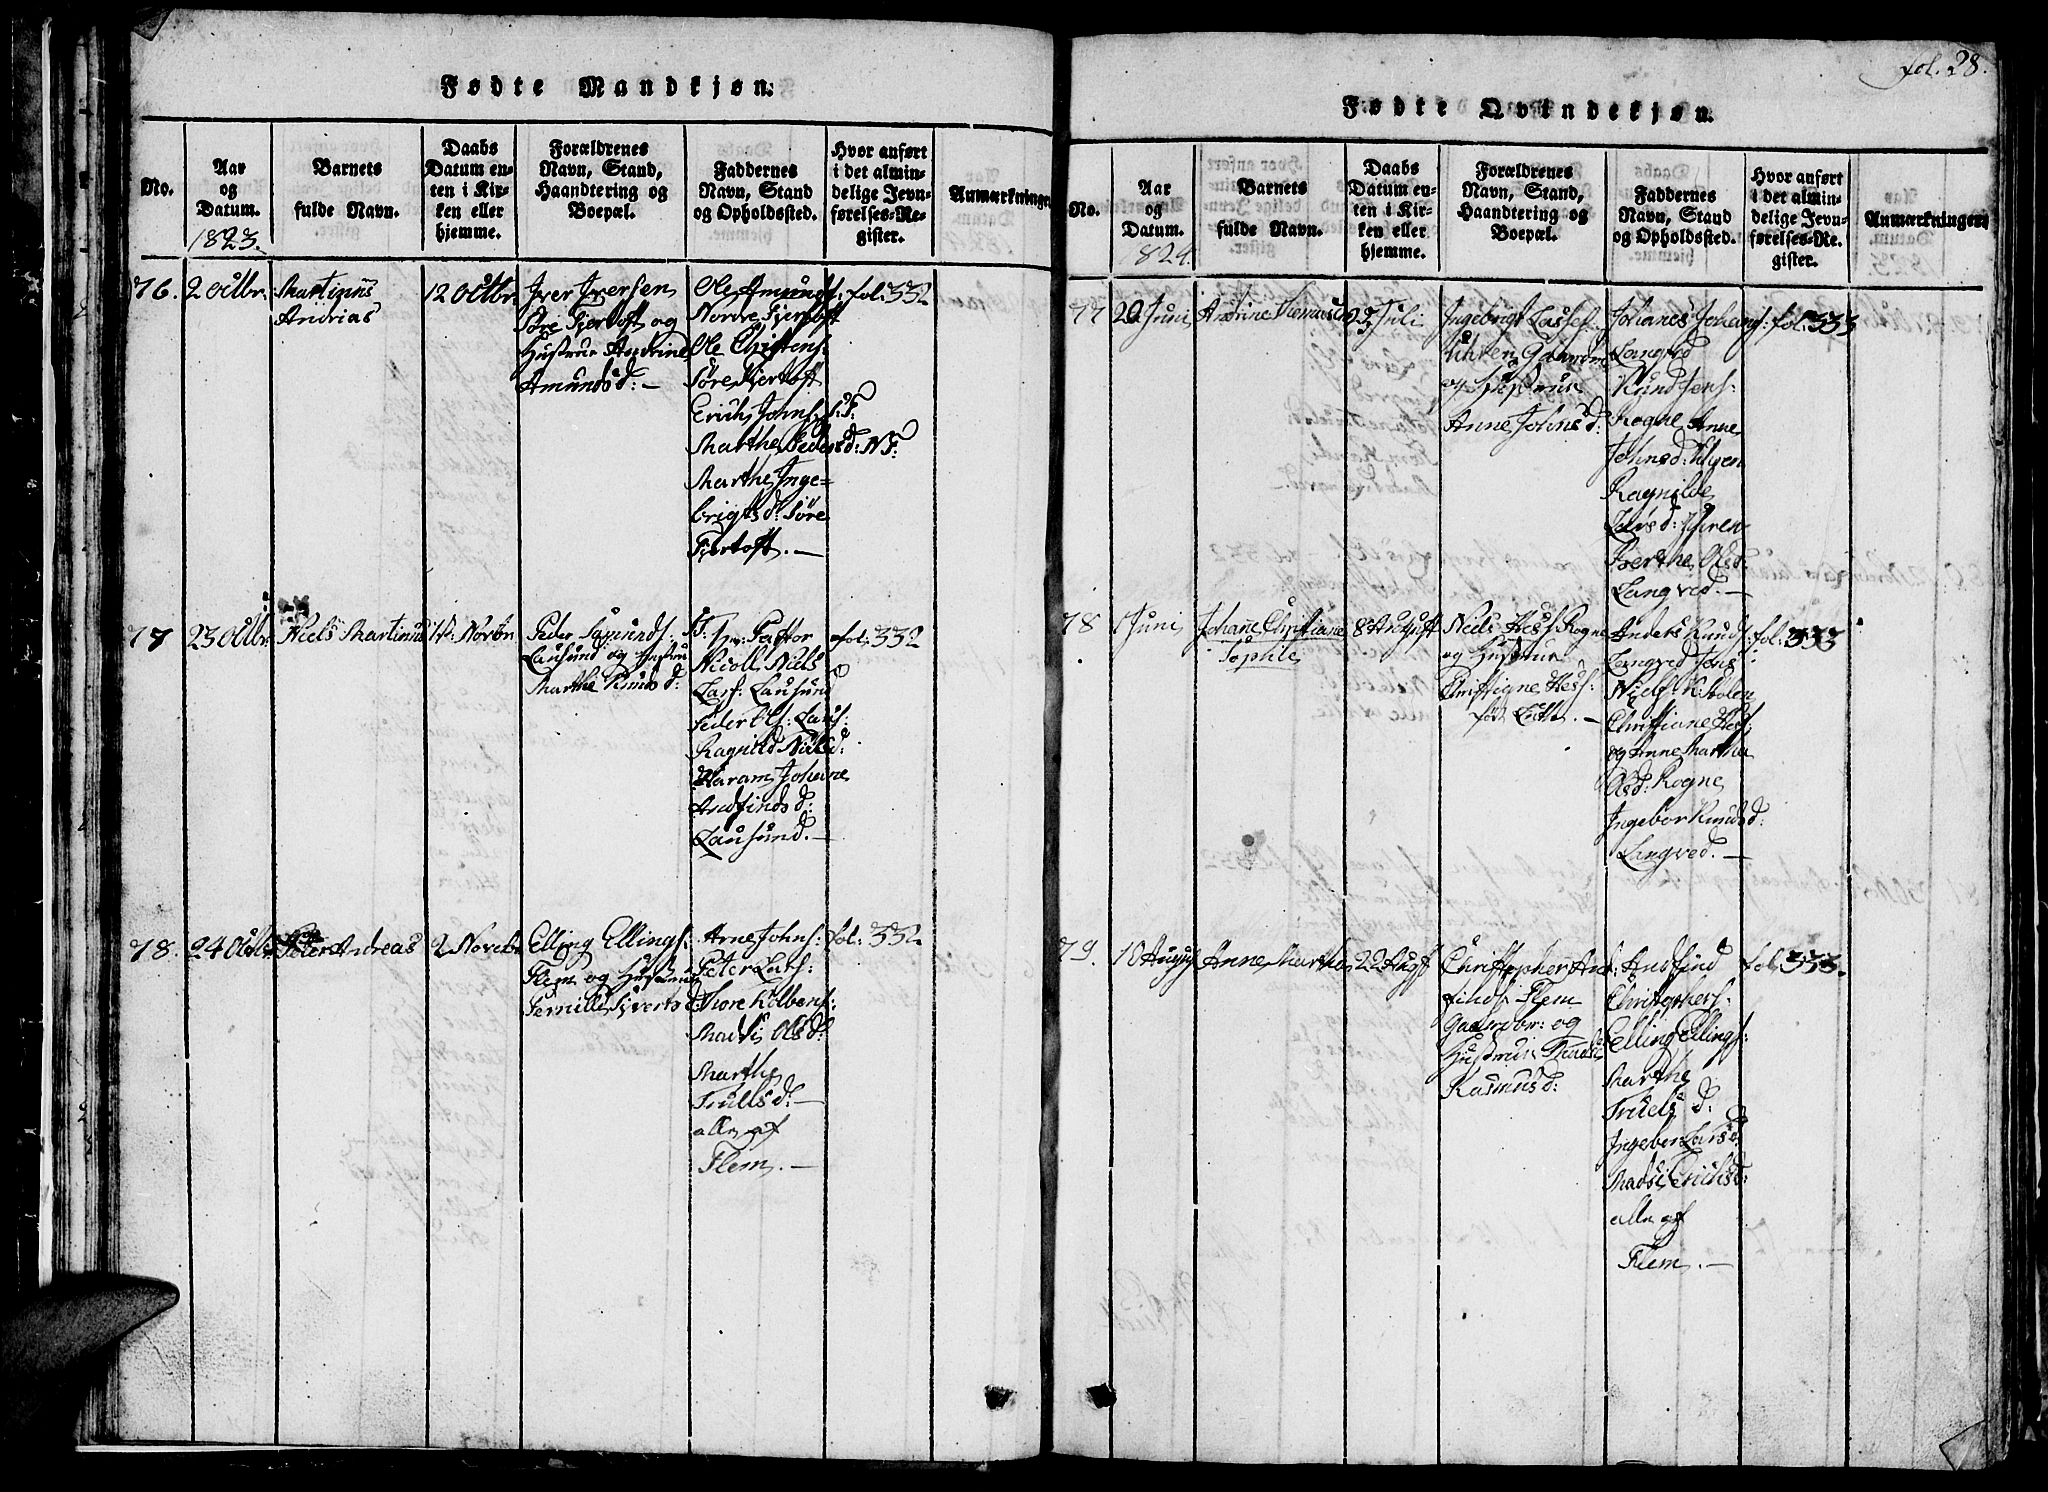 Fødte Mandkjøn.
No.
Aar
og
Datum.
1823.
Barnets
fulde Navn.
Daabs
Datum en-
ten i Kir-
ken eller
hjemme.
Forældrenes
Navn, Stand,
Haandtering og
Boepæl.
Faddernes
Navn, Stand
og Opholdssted.
Hvor anført
i det almin-
delige Jevn-
førelses-Re-
gister.
Anmærkninger
76.
2 Octbr.
Martinus
Andrias
12 Octbr.
Iver Iversen
Søre Fjertoft og
Hustrue Andrine
Amundsd: —
Ole Amunds:
Nordre Fjertoft
Ole Christens:
Søre Fjertoft
Erich Johns: S: F:
Marthe Pedersd: N F:
Marthe Inge-
brigtsd: Søre
Fjertoft. —
fol: 332
77
23 Octbr.
Niels Martinus
14 Novbr.
Peder
Lausund og Hustrue
Marthe Knudsd:
Nicoll Niels
Lars: Lausund
Peder Ols: Laus:
Ragnild Nielsd:
Haram Johane
Andfindsd:
Lausund. —
fol: 332
78.
24 Octbr
Peter Andreas
2 Novebr
Elling Ellings:
Flem og Hustrue
Pernille Siverts d:
Arne Johns:
Peter Lars:
Thore Kolbens:
Madsi Olsd:
Marthe
Trulls d: —
alle af
Flem. —
fol: 332
fol. 28.
Fødte Qvindekjøn.
No.
Aar
og
Datum.
1824.
Barnets
fulde Navn.
Daabs
Datum en-
ten i Kir-
ken eller
hjemme.
Forældrenes
Navn, Stand,
Haandtering og
Boepæl.
Faddernes
Navn, Stand
og Opholdssted.
Hvor anført
i det almin-
delige Jevn-
førelses-Re-
gister.
Anmærkninger
77
20 Juni
Andrine
25 Juli
Ingebrigt Lasses:
og Hustrue
Anne Johnsd:
Johanes Johans:
Langved
Knud Jens:
Rogne Anne
Johnsd:
Ragnilde
Larsd:
Berthe Olsd:
Langved. —
fol: 333
78
1 Juni
Johane Christiane
Sophie
8 August
Niels Hess: Rogne
og Hustrue
Christiane Hess:
Anders Knuds:
Langved Jens
Niels
Christiane Hess:
og Anne Marthe
Olsd: Rogne
Ingebor Knudsd:
Langved. —
fol: 333
79.
10 August
Anne Marthe
22 Augst
Christopher And-
finds: Flem
Gaardbr: og
Hustrue
Rasmusd:
Andfind
Christophers:
Elling Ellings:
Marthe
Truels d:
Ingebor Larsd:
Madsi Erichsd:
alle af
Flem. —
fol: 333.